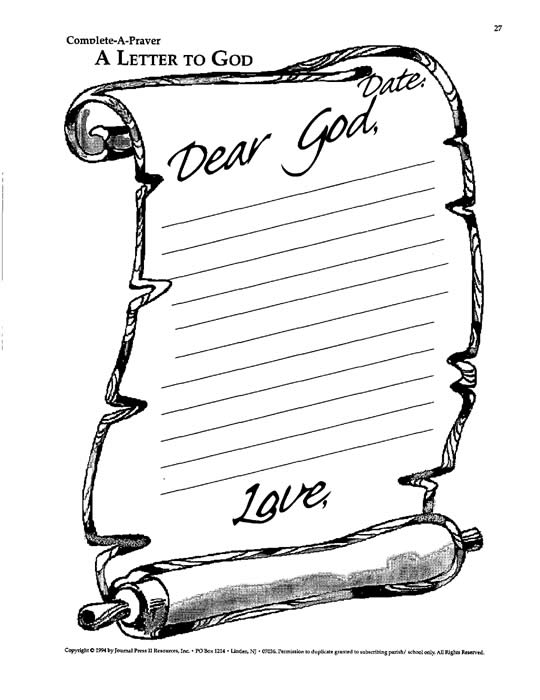 27
Complete-A-Prayer
A LETTER TO GOD
Date:
Dear God,
Love,
Copyright © 1994 by Journal Press II Resources, Inc. • PO Box 1214 • Linden, NJ • 07036. Permission to duplicate granted to subscribing parish/ school only. All Rights Reserved.